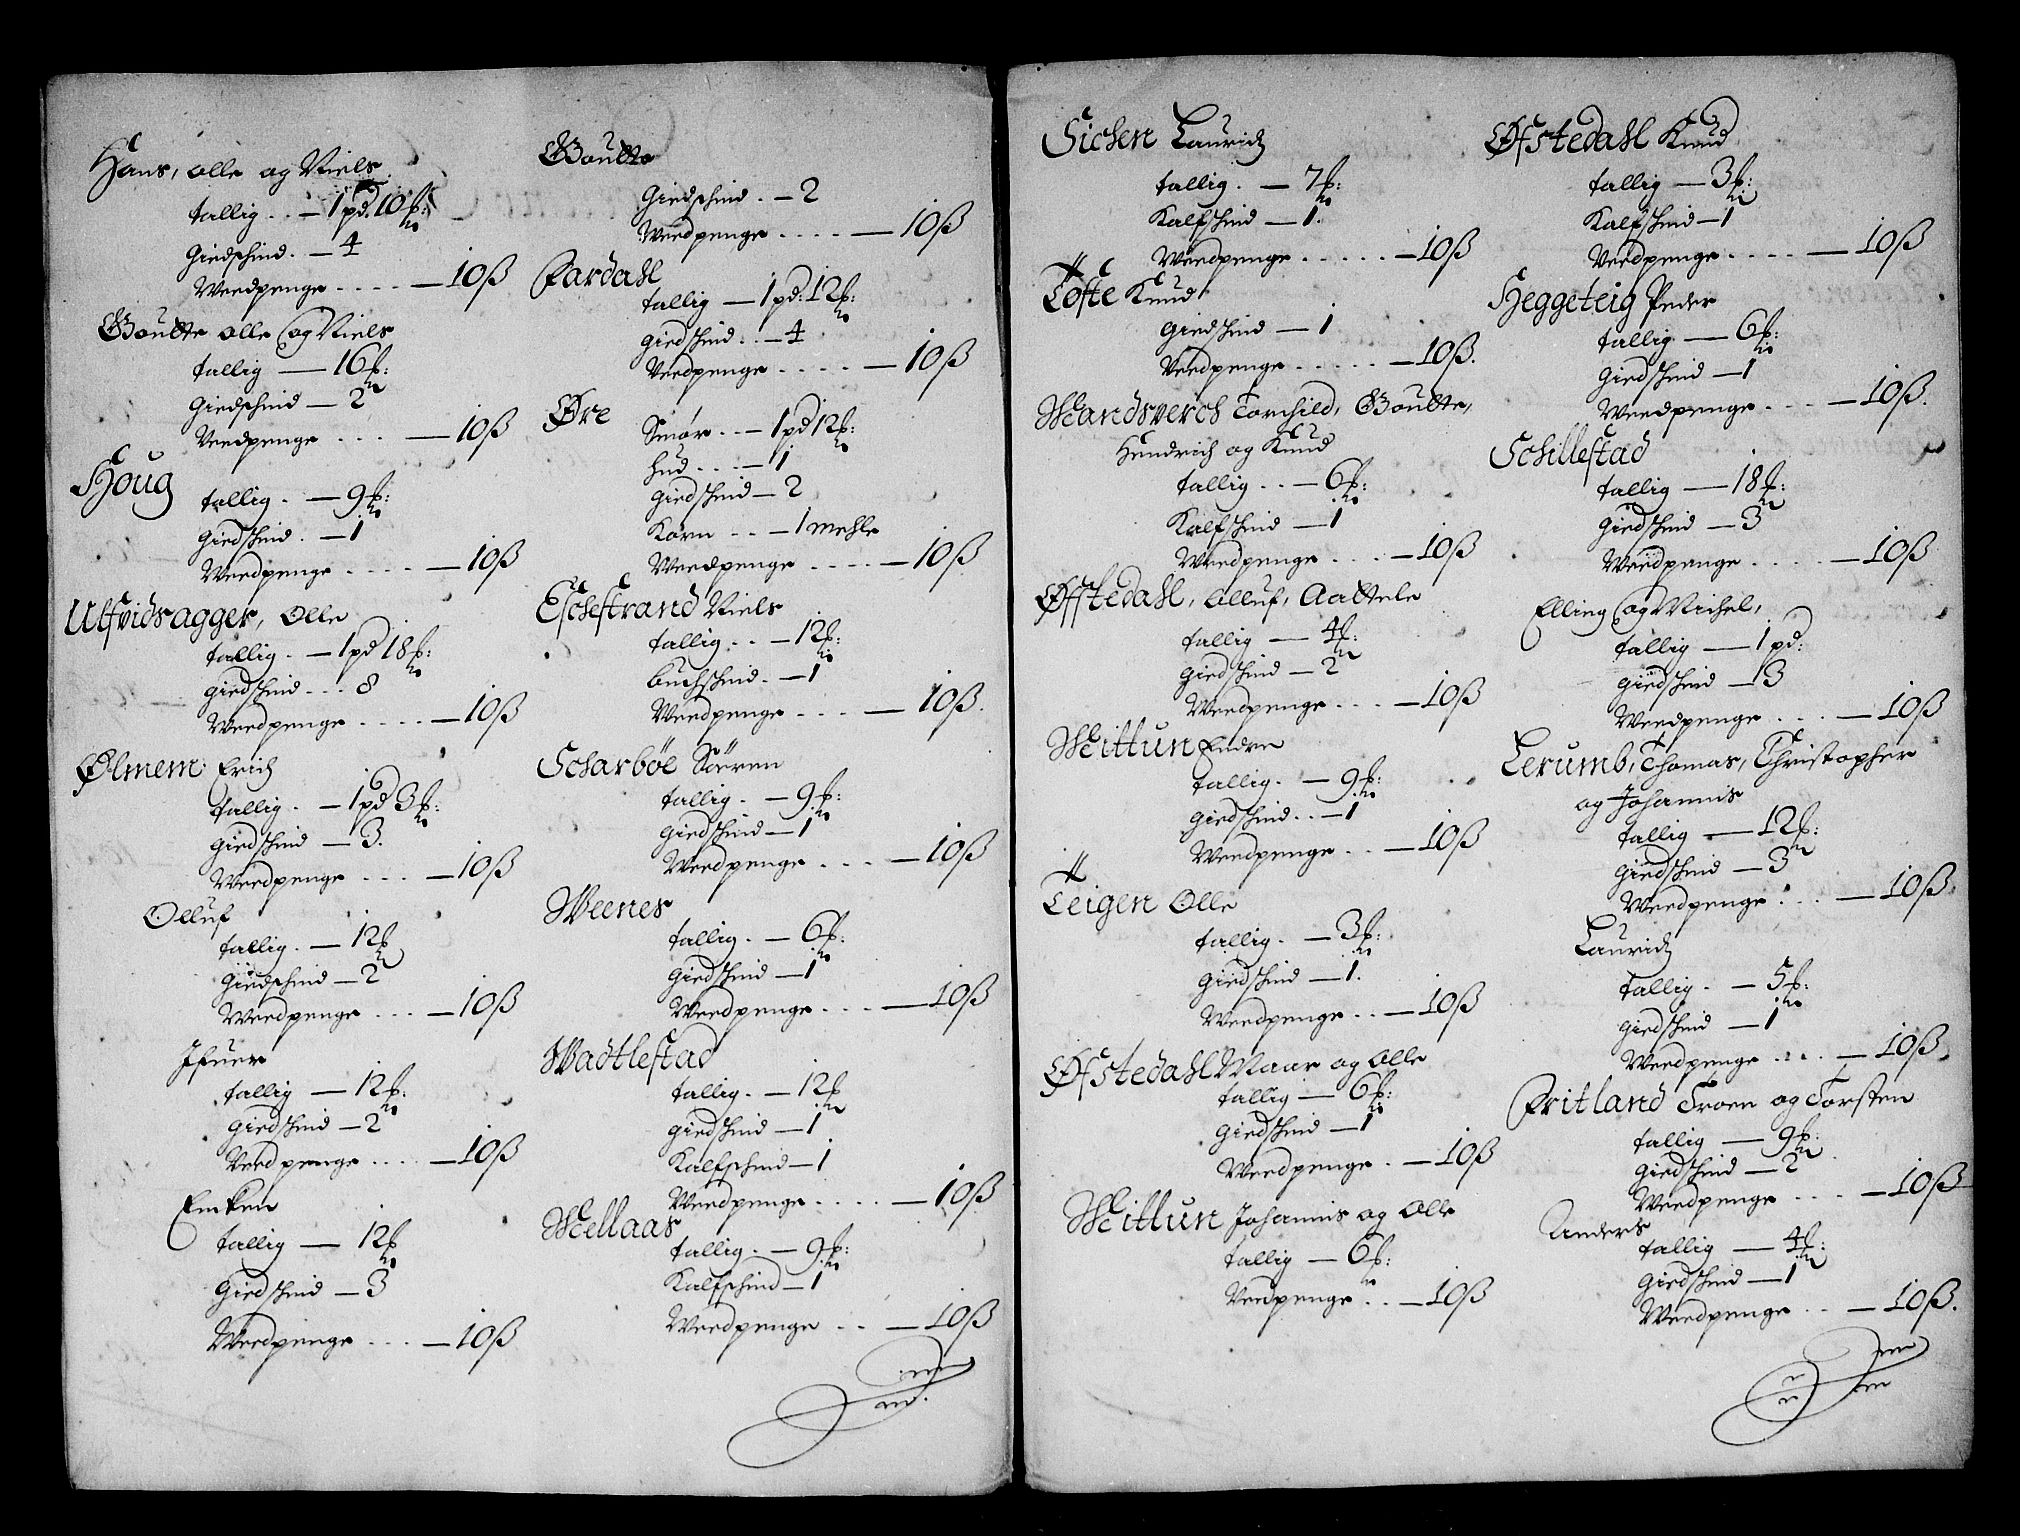 Hans, olle og Niels
tallig . . — 1 pd. 10 ℔:
giedschind . — 4
Werdpenge . . . . — 10 ß
Goutte olle og Niels
tallig — 16 ℔:
giedschind — 2
Werdpenge . . . — 10 ß
Houg
tallig . — 9 ℔:
giedschind . — 1
Werdpenge . . . . — 10 ß
Ulfvidsagger, olle
tallig . — 1 pd 18 ℔:
giedschind . . . 8
Werdpenge . . . . — 10 ß
Ølmem Erich
tallig . — 1 pd 3 ℔:
giedschind — 3.
Werdpenge . . . — 10 ß
Olluf
tallig . — 12 ℔
giedschind — 2
Werdpenge . . . — 10 ß
Ifuer
tallig — 12 ℔.
giedschind — 2
Werdpenge . . . . — 10 ß
tallig — 12 ℔
giedschind — 3
Werdpenge . . . — 10 ß
Goutte
giedschind . — 2
Werdpenge . . . . — 10 ß
Fardahl
tallig — 1 pd: 12 ℔:
giedschind . . — 4
Werdpenge . . . . — 10 ß
Øre
Smør . . — 1 pd 12 ℔:
hud . . . — 1
giedschind — 2
Korn . . . — 1 mehle
Werdpenge . . . . — 10 ß
Eschestrand Niels
tallig . . — 12 ℔:
buchschind . — 1
Werdpenge . . . — 10 ß.
Scharbøe Søeren
tallig . — 9 ℔:
giedschind — 1
Werdpenge . . . — 10 ß
Weenes
tallig . — 6 ℔:
giedschind — 1
Werdpenge . . . — 10 ß
Wadtlestad
tallig . — 12 ℔
giedschind — 1
Kalfschind — 1
Werdpenge . . . . — 10 ß
Mellaas
tallig . — 9 ℔:
Kalfschind — 1
Werdpenge . . — 10 ß
Sichen Lauridz
tallig . — 7 ℔:
Kalfschind — 1.
Werdpenge . . . . . — 10 ß
Tofte Knud
giedschind — 1
Werdpenge . . . . . — 10 ß.
Mandsverch Torchild, Goutte,
Hendrich og Knud
tallig . . — 6 ℔:
Kalfschind — 1
Werdpenge . . . — 10 ß
Øffstedahl, olluf, Aattele
tallig — 4 ℔:
giedschind — 2
Werdpenge . . . — 10 ß
Mittun Endre
tallig . — 9 ℔:
giedschind . . — 1
Werdpenge . . — 10 ß
Teigen olle
tallig . — 3 ℔:
giedschind — 1.
Werdpenge . . — 10 ß
Øfstedahl Maar og olle
tallig — 6 ℔:
giedschind — 1
Werdpenge . — 10 ß
Mittun Johannis og olle
tallig — 6 ℔:
Werdpenge . . — 10 ß
Øfstedahl Knud
tallig — 3 ℔:
Kalfschind — 1
Werdpenge . . . . — 10 ß
Heggeteig Peder
tallig — 6 ℔:
giedschind — 1
Werdpenge . . . — 10 ß.
Schillestad
tallig — 18 ℔:
giedschind — 3
Werdpenge . . . . — 10 ß
Elling og Michel,
tallig — 1 pd:
giedschind — 3
Werdpenge . . . — 10 ß
Lerumb, Thomas, Christopher
og Johannis
tallig — 12 ℔:
giedschind — 3
Werdpenge . . . — 10 ß.
Lauridz
tallig . — 5 ℔:
giedschind — 1
Werdpenge . . . . — 10 ß.
Fritland Troen og Torsten
tallig — 9 ℔:
giedschind — 2
Werdpenge . . . — 10 ß
Anders
tallig — 4 ℔:
giedschind — 1
Werdpenge . . — 10 ß.